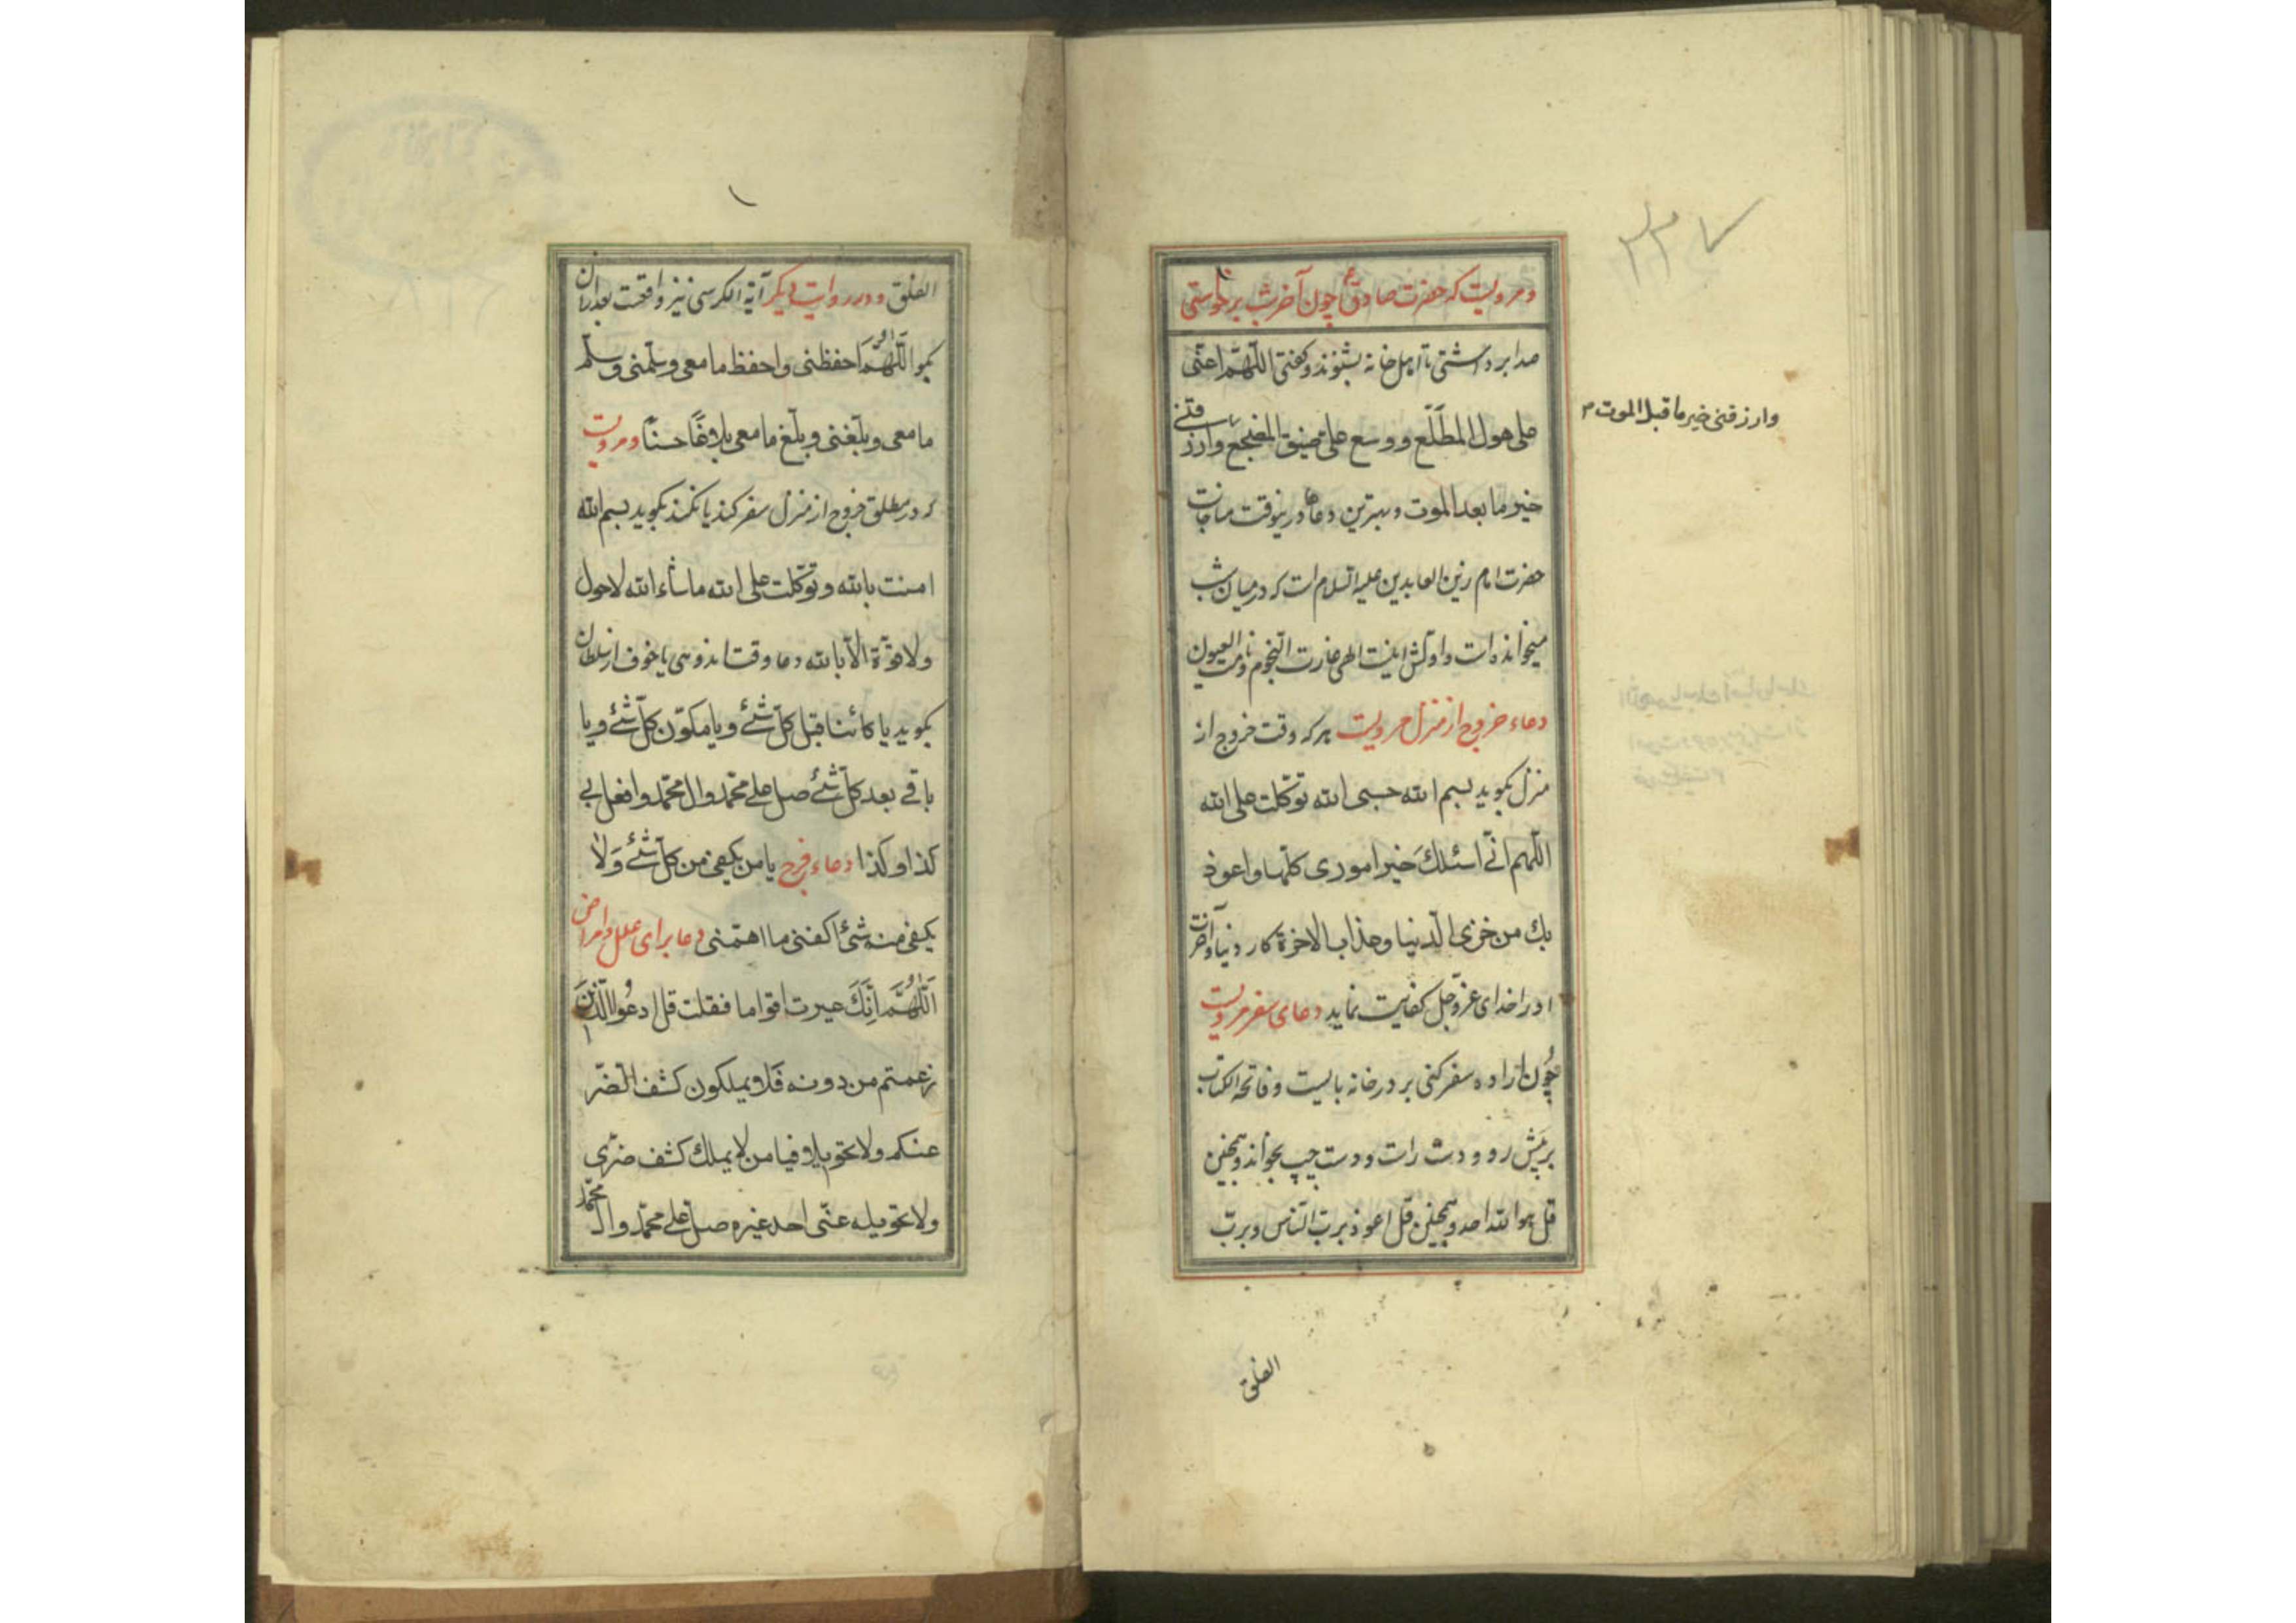 ۲۳۷
و مرویست که حضرت صادق ع چون آخر شب برخواستی
صدا برداشتی تا اهل خانه بشنوند و گفتی اللّهمّ اعنّی
علی هول المطّلع و وسع علیّ ضیق المضجع وارزقنی
وارزقنی خیر ما قبل الموت
خیر ما بعد الموت و بهترین دعاها درینوقت مناجات
حضرت امام زین العابدین علیه السّلام است که در میان شب
میخوانده است و اوّلش اینست الهی غارت النّجوم و نامت العیون
دعاء خروج از منزل مرویست هر که وقت خروج از
منزل بگوید بسم الله حسبی الله توکّلت علی الله
اللّهم انّی اسئلك خیر اموری کلّها واعوذ
بك من خزی الدّنیا وعذاب الاخرة کار دنیا و آخرت
او را خدای عزّوجلّ کفایت نماید دعای سفر مرویست
چون اراده سفر کنی بر در خانه بایست و فاتحه الکتاب
بر پیش رو و دست راست و دست چپ بخواند و همچنین
قل هو الله احد و همچنین قل اعوذ بربّ النّاس و بربّ
الفلق
۱
الفلق و در روایت دیگر آیة الکرسی نیز واقعست بعد از آن
بگو اللّهُمَّ احفظنی واحفظ ما معی وسلّمنی وسلّم
ما معی وبلّغنی وبلّغ ما معی بلاغًا حسنًا و مرویست
که در مطلق خروج از منزل سفر کند یا نکند بگوید بسم الله
امنت بالله وتوکّلت علی الله ماشاء الله لاحول
ولاقوّة الّا بالله دعا وقت اندوهی یا خوف از سلطان
بگوید یا کائنا قبل کلّ شئ ویا مکوّن کلّ شئ ویا
باقی بعد کلّ شئ صل علی محمّد وال محمّد وافعل بی
کذا وکذا دعاء فرج یا من یکفی من کلّ شئ وَلا
یکفی منه شئ اکفنی ما اهمّنی دعا برای علل و امراض
اَللّهُمَّ اِنَّكَ عیرت اقواما فقلت قل ادعُوا الّذینَ
زعمتم من دونه فلا یملکون کشف الضّر
عنکم ولا تحویلا فیا من لا یملك کشف ضرّی
ولا تحویله عنّی احد غیره صلّ علی محمّد وال محمّد